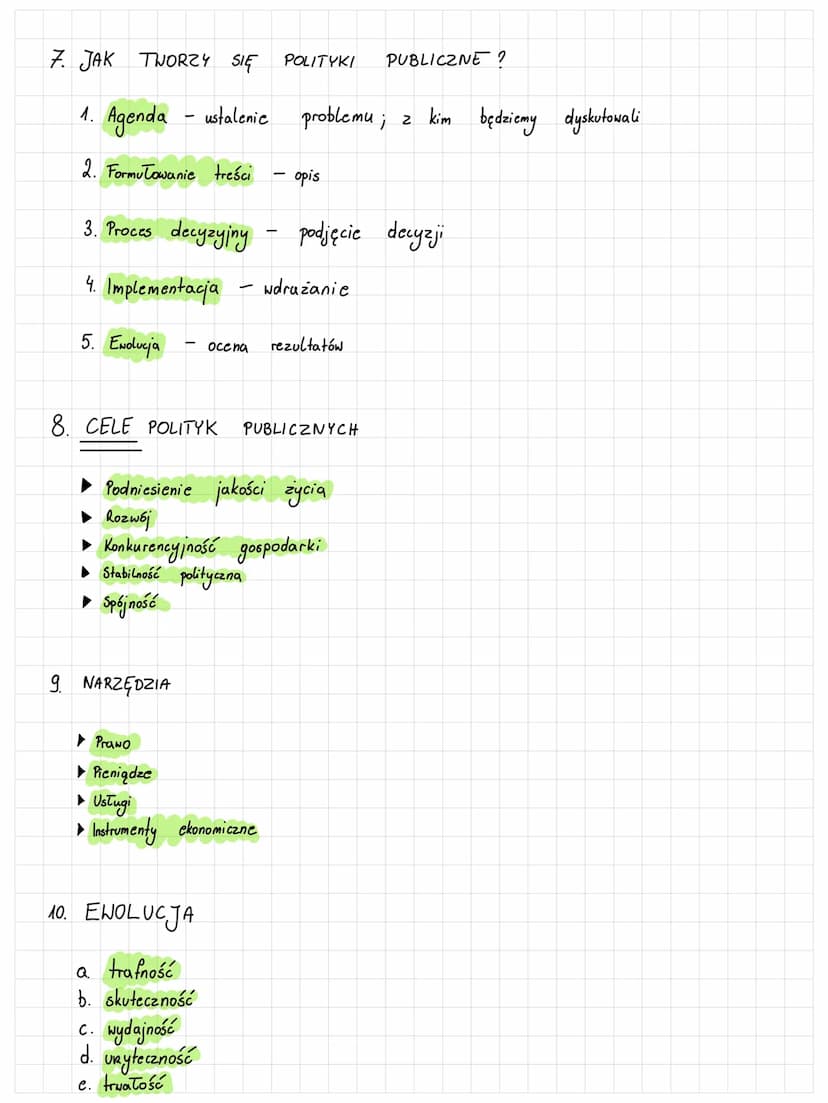 7. JAK TWORZY SIĘ POLITYKI PUBLICZNE?
1. Agenda – ustalenie problemu; z kim będziemy dyskutowali
2. Formułowanie treści – opis
3. Proces decyzyjny – podjęcie decyzji
4. Implementacja – wdrażanie
5. Ewolucja – ocena rezultatów
8. CELE POLITYK PUBLICZNYCH
▶ Podniesienie jakości życia
▶ Rozwój
▶ Konkurencyjność gospodarki
▶ Stabilność polityczna
▶ Spójność
9. NARZĘDZIA
▶ Prawo
▶ Pieniądze
▶ Usługi
▶ Instrumenty ekonomiczne
10. EWOLUCJA
a. trafność
b. skuteczność
c. wydajność
d. użyteczność
e. trwałość